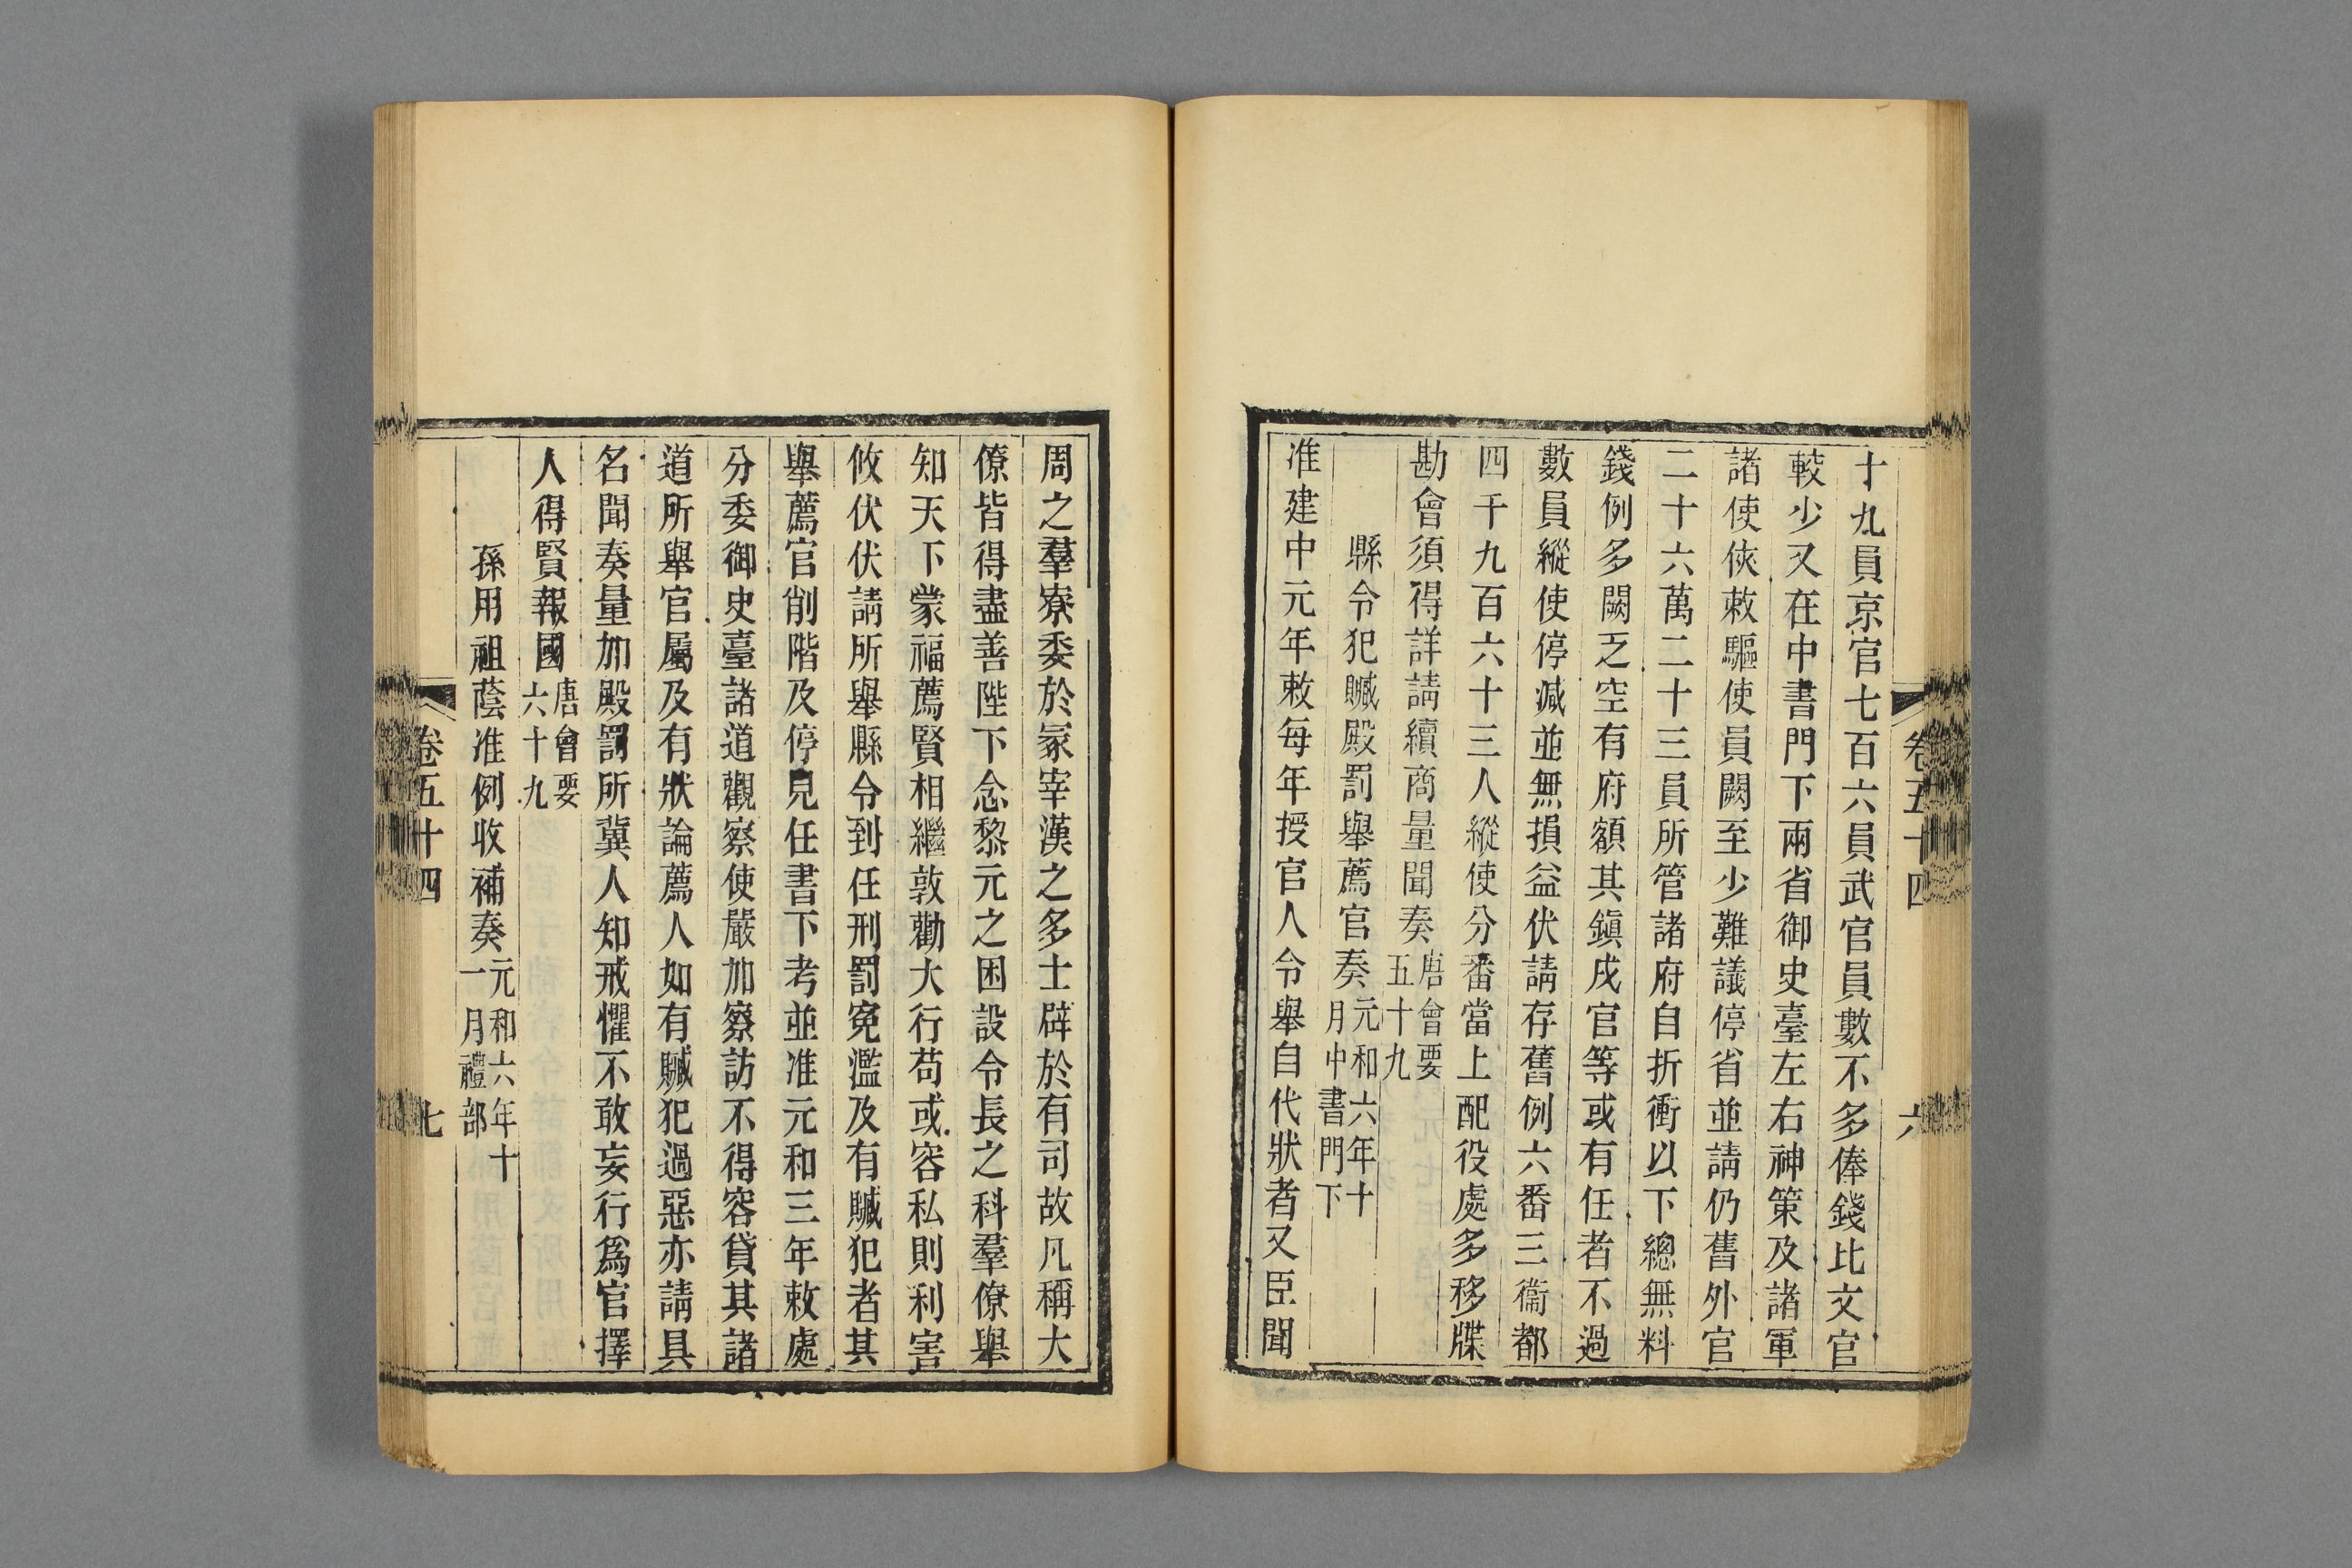 卷五十四
六
十九員京官七百六員武官員數不多俸錢比文官
較少又在中書門下兩省御史臺左右神策及諸軍
諸使俠敕驅使員闕至少難議停省並請仍舊外官
二十六萬二十三員所管諸府自折衝以下總無料
錢例多闕乏空有府額其鎭戍官等或有任者不過
數員縱使停減並無損益伏請存舊例六番三衞都
四千九百六十三人縱使分番當上配役處多移牒
勘會須得詳請續商量聞奏唐會要
五十九
縣令犯贓殿罰舉薦官奏元和六年十
月中書門下
准建中元年敕每年授官人令舉自代狀者又臣聞
周之羣寮委於冢宰漢之多士辟於有司故凡稱大
僚皆得盡善陛下念黎元之困設令長之科羣僚舉
知天下蒙福薦賢相繼敦勸大行苟或容私則利害
攸伏伏請所舉縣令到任刑罰寃濫及有贓犯者其
舉薦官削階及停見任書下考並准元和三年敕處
分委御史臺諸道觀察使嚴加察訪不得容貸其諸
道所舉官屬及有狀論薦人如有贓犯過惡亦請具
名聞奏量加殿罰所冀人知戒懼不敢妄行爲官擇
人得賢報國唐會要
六十九
孫用祖蔭准例收補奏元和六年十
一月禮部
卷五十四
七